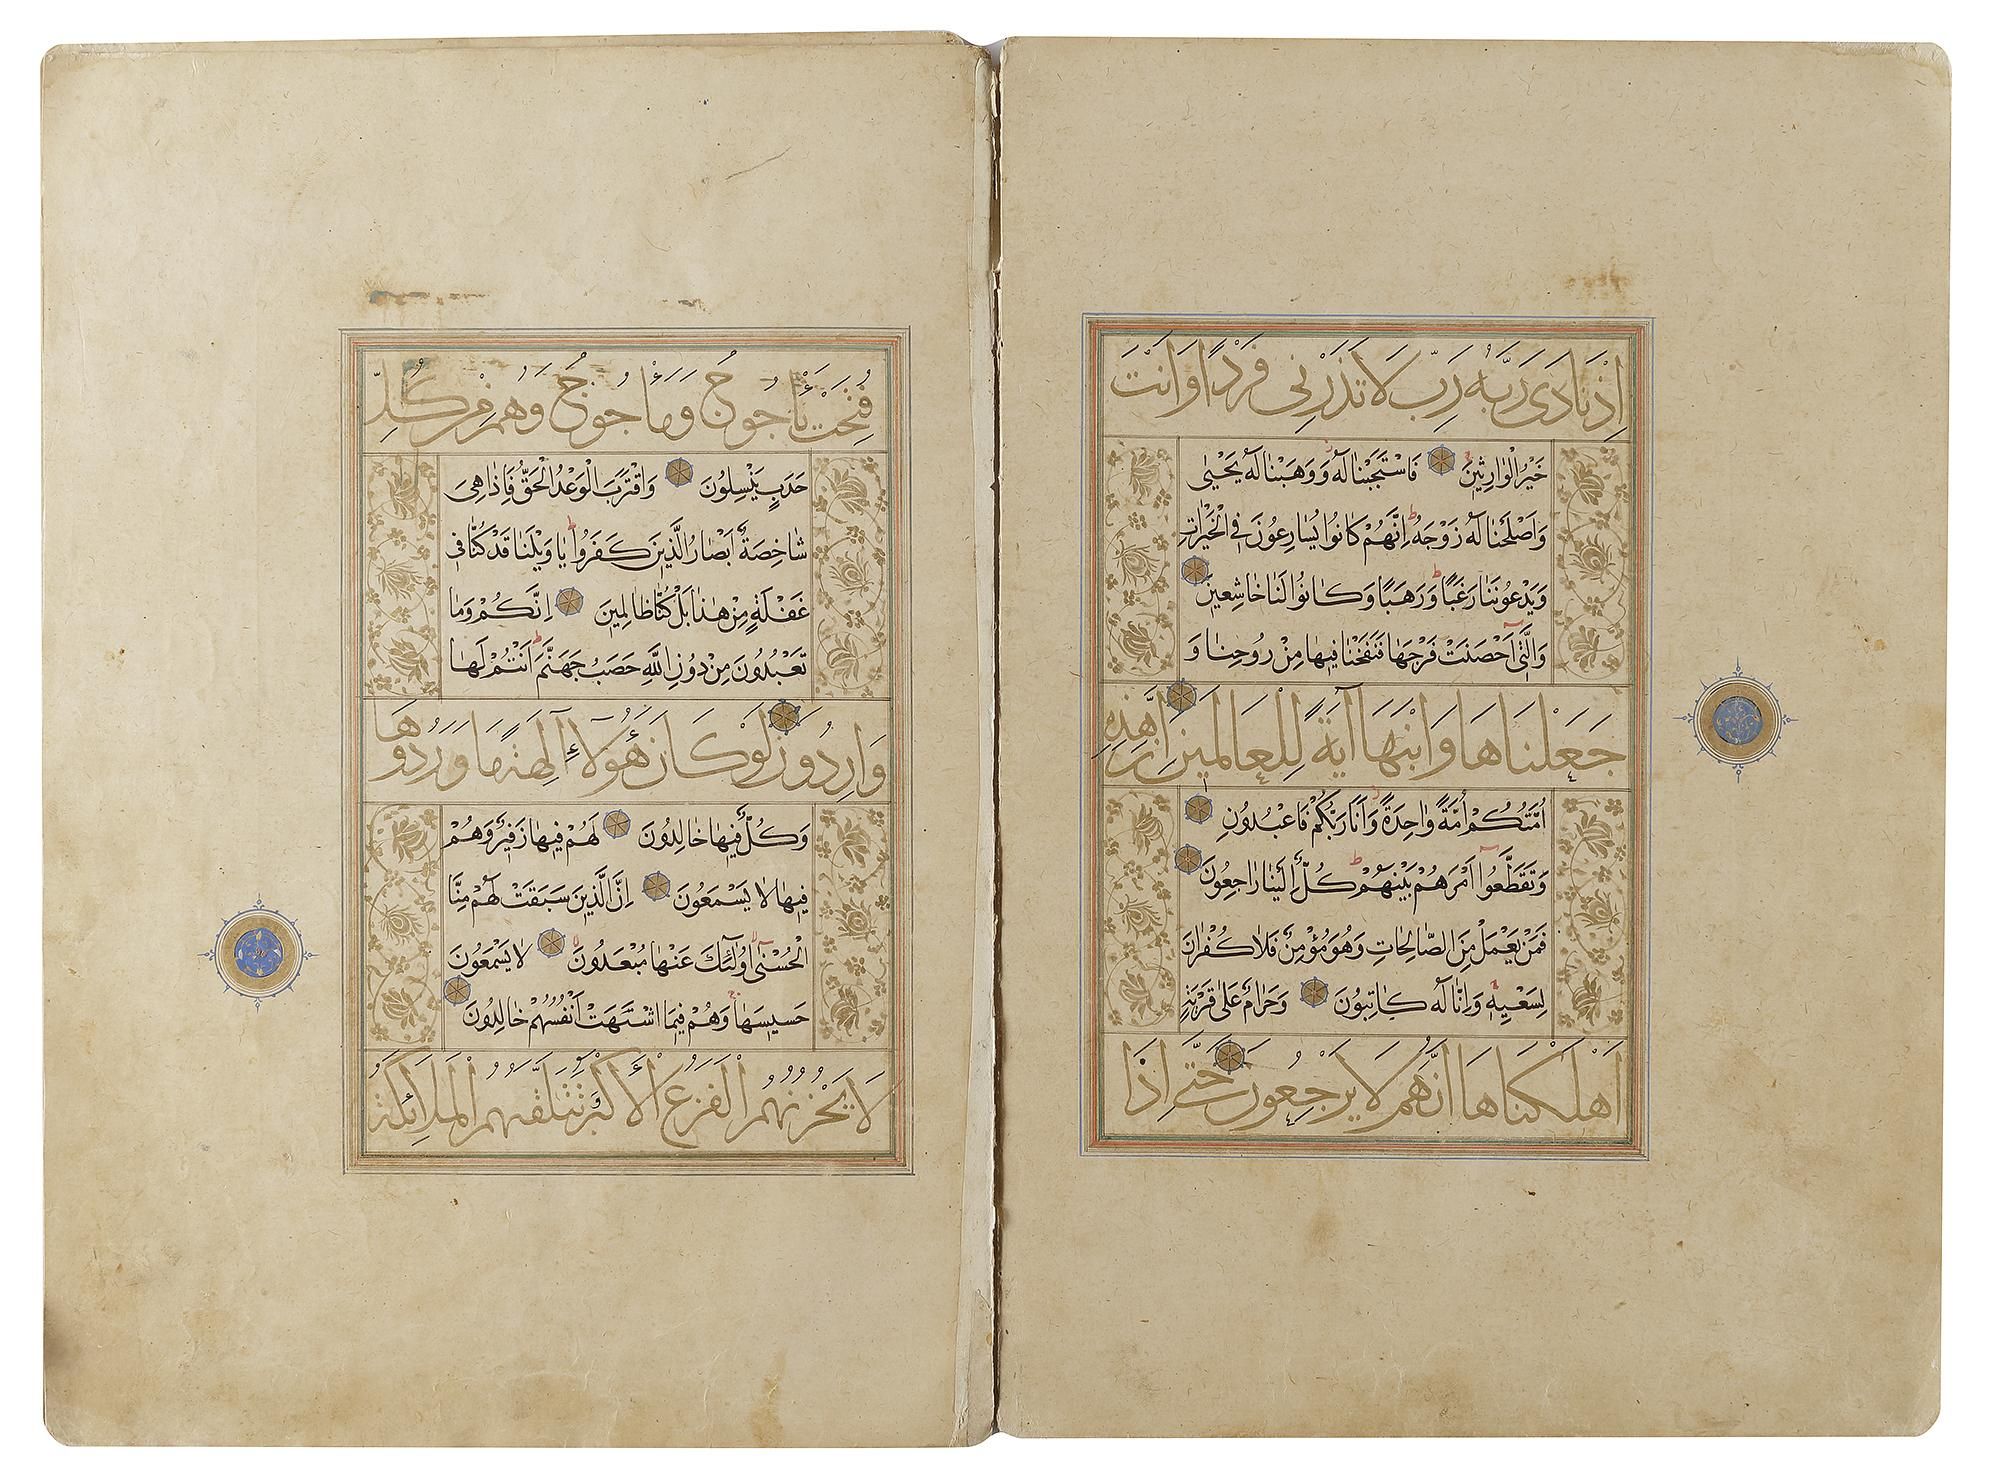 إِذْ نَادَى رَبَّهُ رَبِّ لَا تَذَرْنِي فَرْدًا وَأَنْتَ
خَيْرُ الْوَارِثِينَ فَاسْتَجَبْنَا لَهُ وَوَهَبْنَا لَهُ يَحْيَى
وَأَصْلَحْنَا لَهُ زَوْجَهُ إِنَّهُمْ كَانُوا يُسَارِعُونَ فِي الْخَيْرَاتِ
وَيَدْعُونَنَا رَغَبًا وَرَهَبًا وَكَانُوا لَنَا خَاشِعِينَ
وَالَّتِي أَحْصَنَتْ فَرْجَهَا فَنَفَخْنَا فِيهَا مِنْ رُوحِنَا وَ
جَعَلْنَاهَا وَابْنَهَا آيَةً لِلْعَالَمِينَ إِنَّ هَذِهِ
أُمَّتُكُمْ أُمَّةً وَاحِدَةً وَأَنَا رَبُّكُمْ فَاعْبُدُونِ
وَتَقَطَّعُوا أَمْرَهُمْ بَيْنَهُمْ كُلٌّ إِلَيْنَا رَاجِعُونَ
فَمَنْ يَعْمَلْ مِنَ الصَّالِحَاتِ وَهُوَ مُؤْمِنٌ فَلَا كُفْرَانَ
لِسَعْيِهِ وَإِنَّا لَهُ كَاتِبُونَ وَحَرَامٌ عَلَى قَرْيَةٍ
أَهْلَكْنَاهَا أَنَّهُمْ لَا يَرْجِعُونَ حَتَّى إِذَا
فُتِحَتْ يَأْجُوجُ وَمَأْجُوجُ وَهُمْ مِنْ كُلِّ
حَدَبٍ يَنْسِلُونَ وَاقْتَرَبَ الْوَعْدُ الْحَقُّ فَإِذَا هِيَ
شَاخِصَةٌ أَبْصَارُ الَّذِينَ كَفَرُوا يَا وَيْلَنَا قَدْ كُنَّا فِي
غَفْلَةٍ مِنْ هَذَا بَلْ كُنَّا ظَالِمِينَ إِنَّكُمْ وَمَا
تَعْبُدُونَ مِنْ دُونِ اللَّهِ حَصَبُ جَهَنَّمَ أَنْتُمْ لَهَا
وَارِدُونَ لَوْ كَانَ هَؤُلَاءِ آلِهَةً مَا وَرَدُوهَا
وَكُلٌّ فِيهَا خَالِدُونَ لَهُمْ فِيهَا زَفِيرٌ وَهُمْ
فِيهَا لَا يَسْمَعُونَ إِنَّ الَّذِينَ سَبَقَتْ لَهُمْ مِنَّا
الْحُسْنَى أُولَئِكَ عَنْهَا مُبْعَدُونَ لَا يَسْمَعُونَ
حَسِيسَهَا وَهُمْ فِيمَا اشْتَهَتْ أَنْفُسُهُمْ خَالِدُونَ
لَا يَحْزُنُهُمُ الْفَزَعُ الْأَكْبَرُ وَتَتَلَقَّيهُمُ الْمَلَائِكَةُ